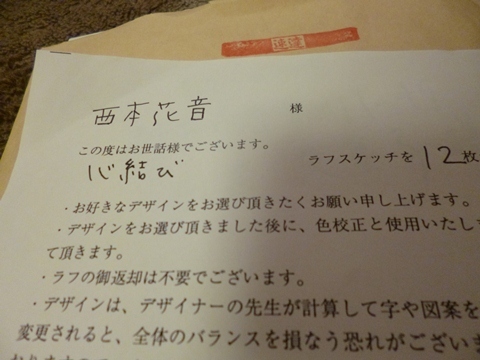 速達
西本花音 様
この度はお世話様でございます。
心結び ラフスケッチを 12枚
・お好きなデザインをお選び頂きたくお願い申し上げます。
・デザインをお選び頂きました後に、色校正と使用いたしま
て頂きます。
・ラフの御返却は不要でございます。
・デザインは、デザイナーの先生が計算して字や図案を
変更されると、全体のバランスを損なう恐れがございま